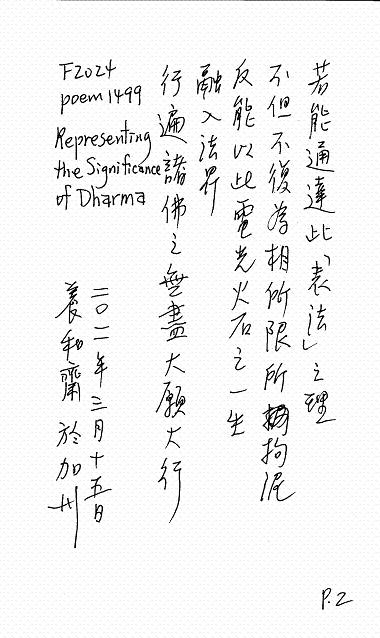 若能通達此「表法」之理
不但不復為相所限所轉拘泥
反能以此電光火石之一生
融入法界
行遍諸佛之無盡大願大行
F2024
poem 1499
Representing
the Significance
of Dharma
二〇一一年三月十五日
養和齋 於加州
P.2